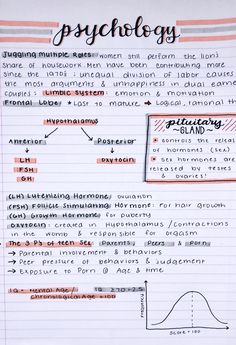 psychology
Juggling multiple Roles: women still perform the lion's
share of housework. Men have been contributing more
since the 1970s; unequal division of labor causes
the most arguments & unhappiness in dual earne
couples; Limbic System: emotion & motivation
Frontal Lobe: *Last to mature → Logical, rational th
Hypothalamus
Anterior
Posterior
LH
FSH
GH
Oxytocin
pituitary
~GLAND~
controls the relea
of hormones (sex)
Sex hormones are
released by testes
& ovaries!
(LH) Luteinizing Hormone: ovulation
(FSH) Follicle Stimulating Hormone: ovarian growth
(GH) Growth Hormone: for puberty
Oxytocin: created in Hypothalamus / contractions
in the womb & responsible for orgasm
The 3 P's of teen sex: Parents, Peers & Porn
→ Parental involvement & behaviors
→ Peer pressure of behaviors & judgement
→ Exposure to Porn @ Age & time
IQ = Mental Age /
chronological Age × 100
Frequency
Score = 100